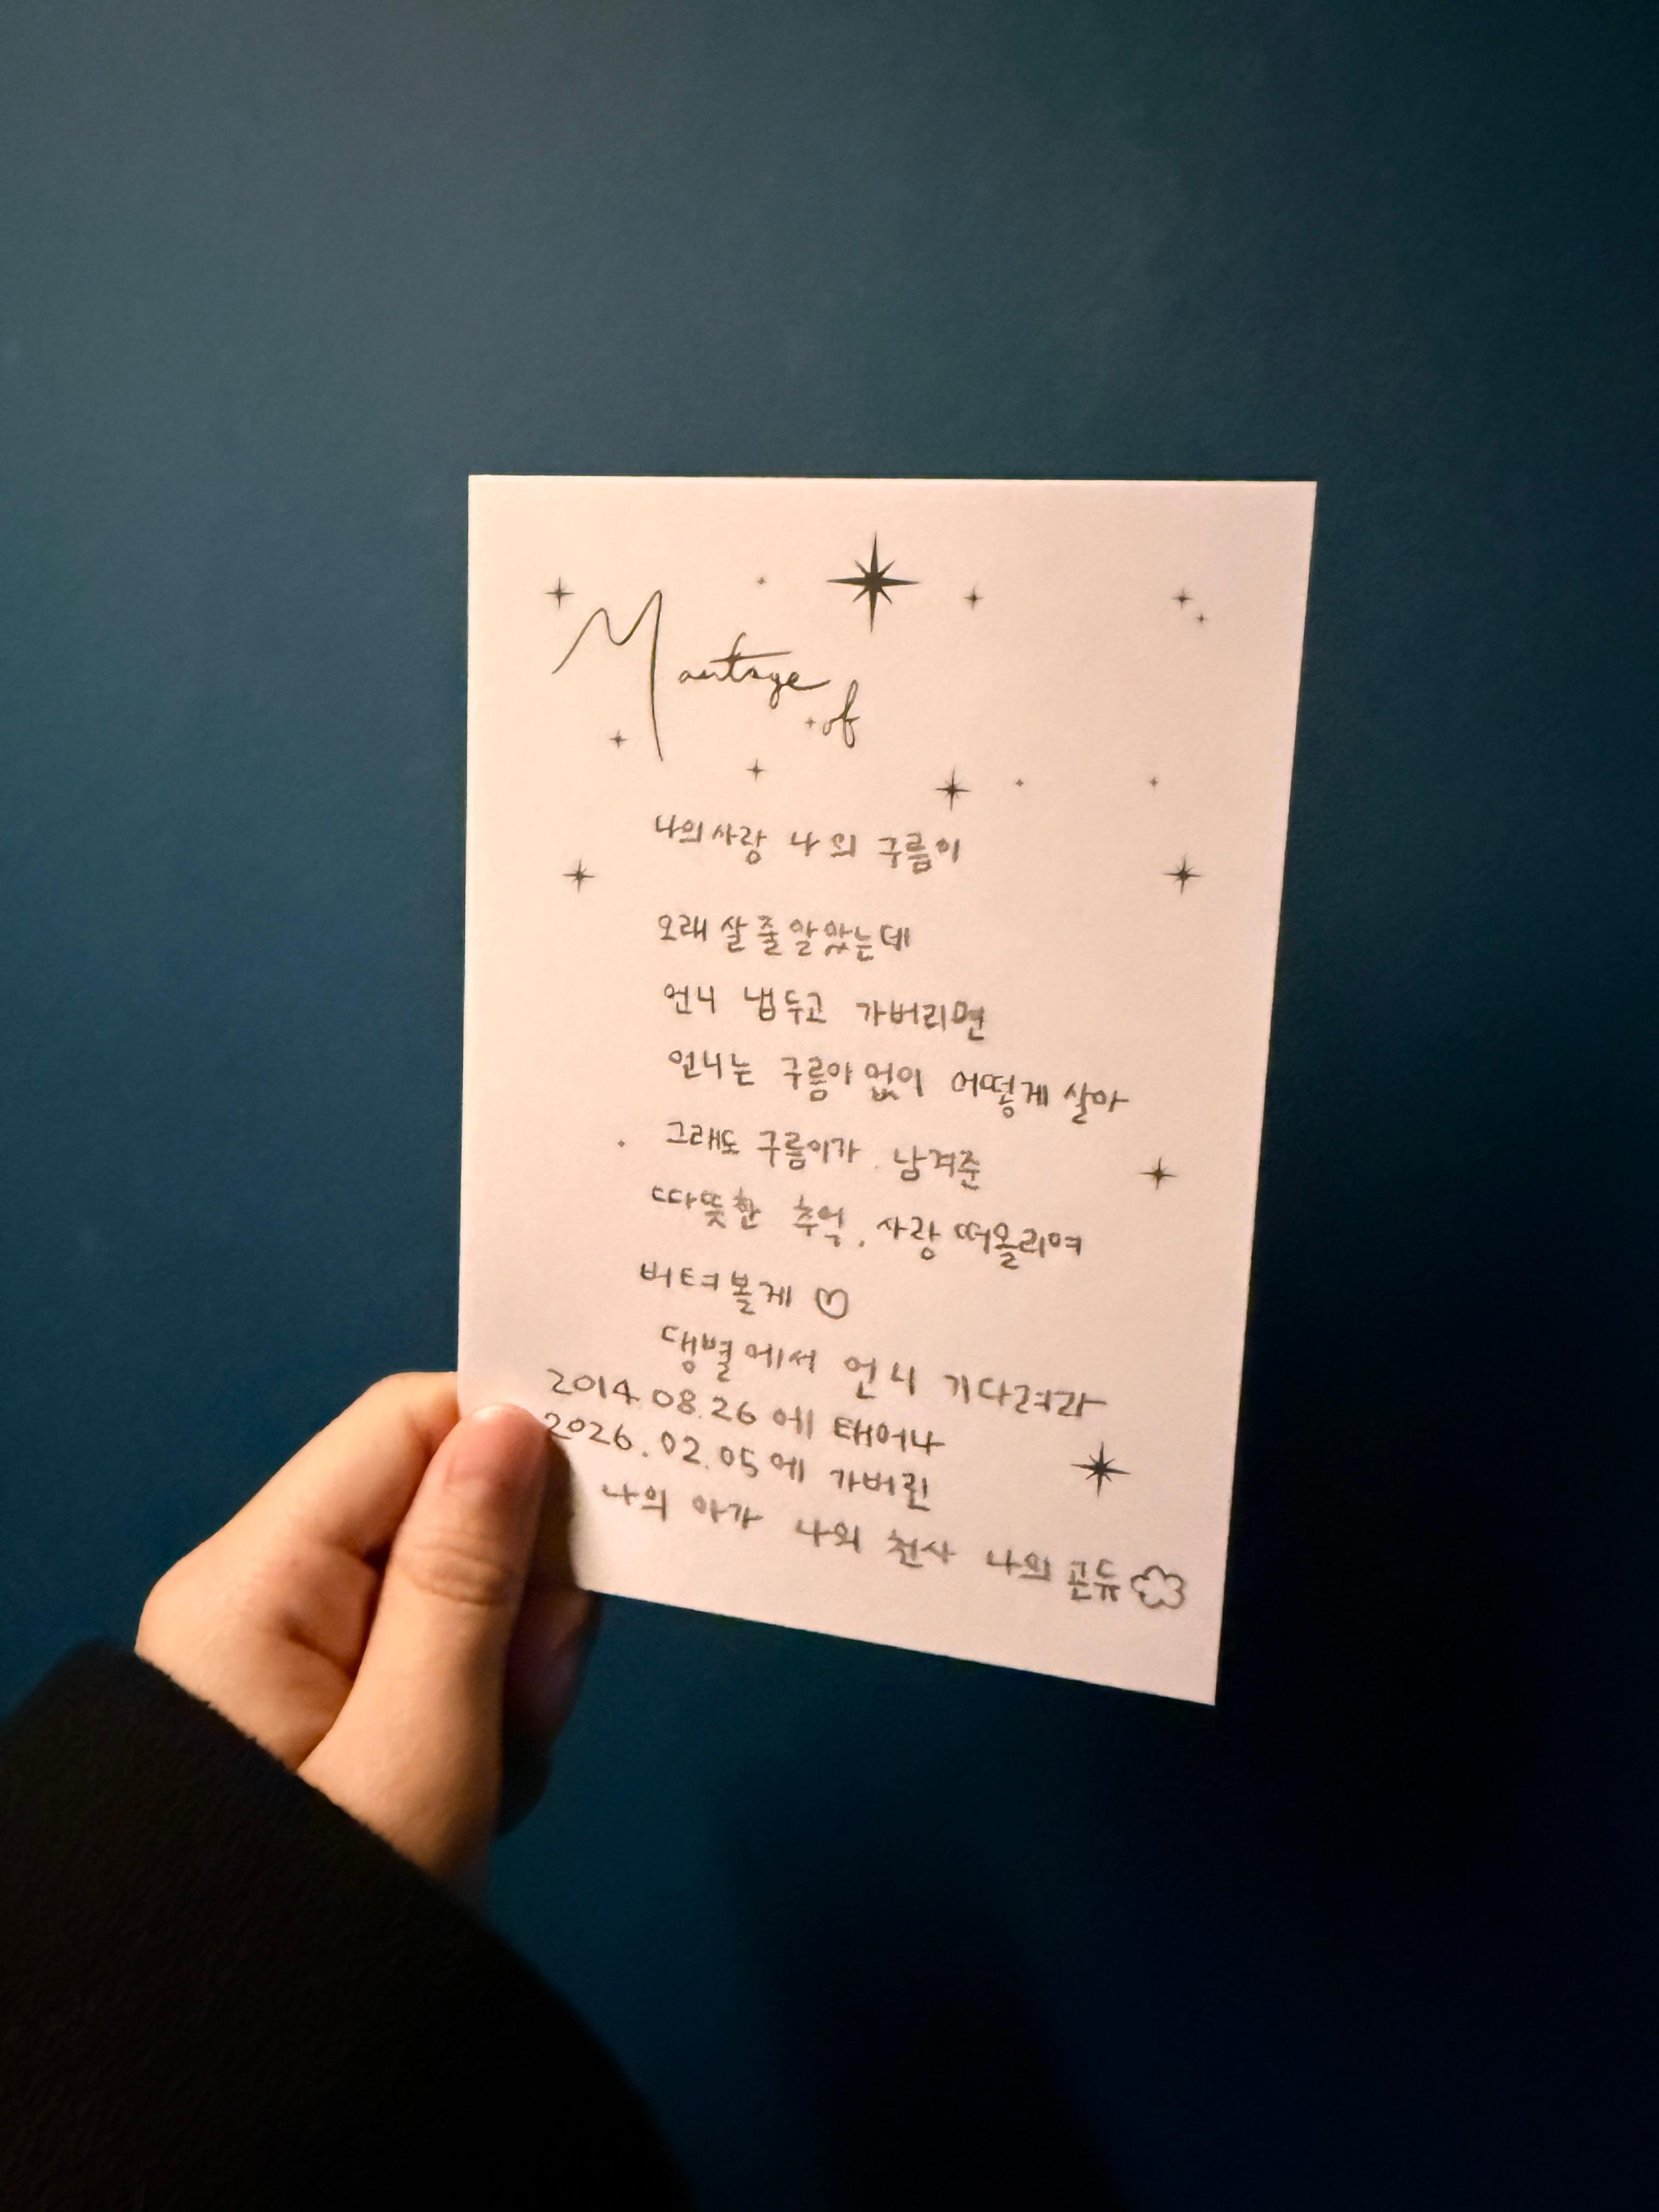 Montage
of
나의 사랑 나의 구름이
오래 살 줄 알았는데
언니 냅두고 가버리면
언니는 구름이 없이 어떻게 살아
그래도 구름이가 남겨준
따뜻한 추억, 사랑 떠올리며
버텨볼게 ♡
댕별에서 언니 기다려라
2014.08.26 에 태어나
2026.02.05에 가버린
나의 아가 나의 천사 나의 곤듀